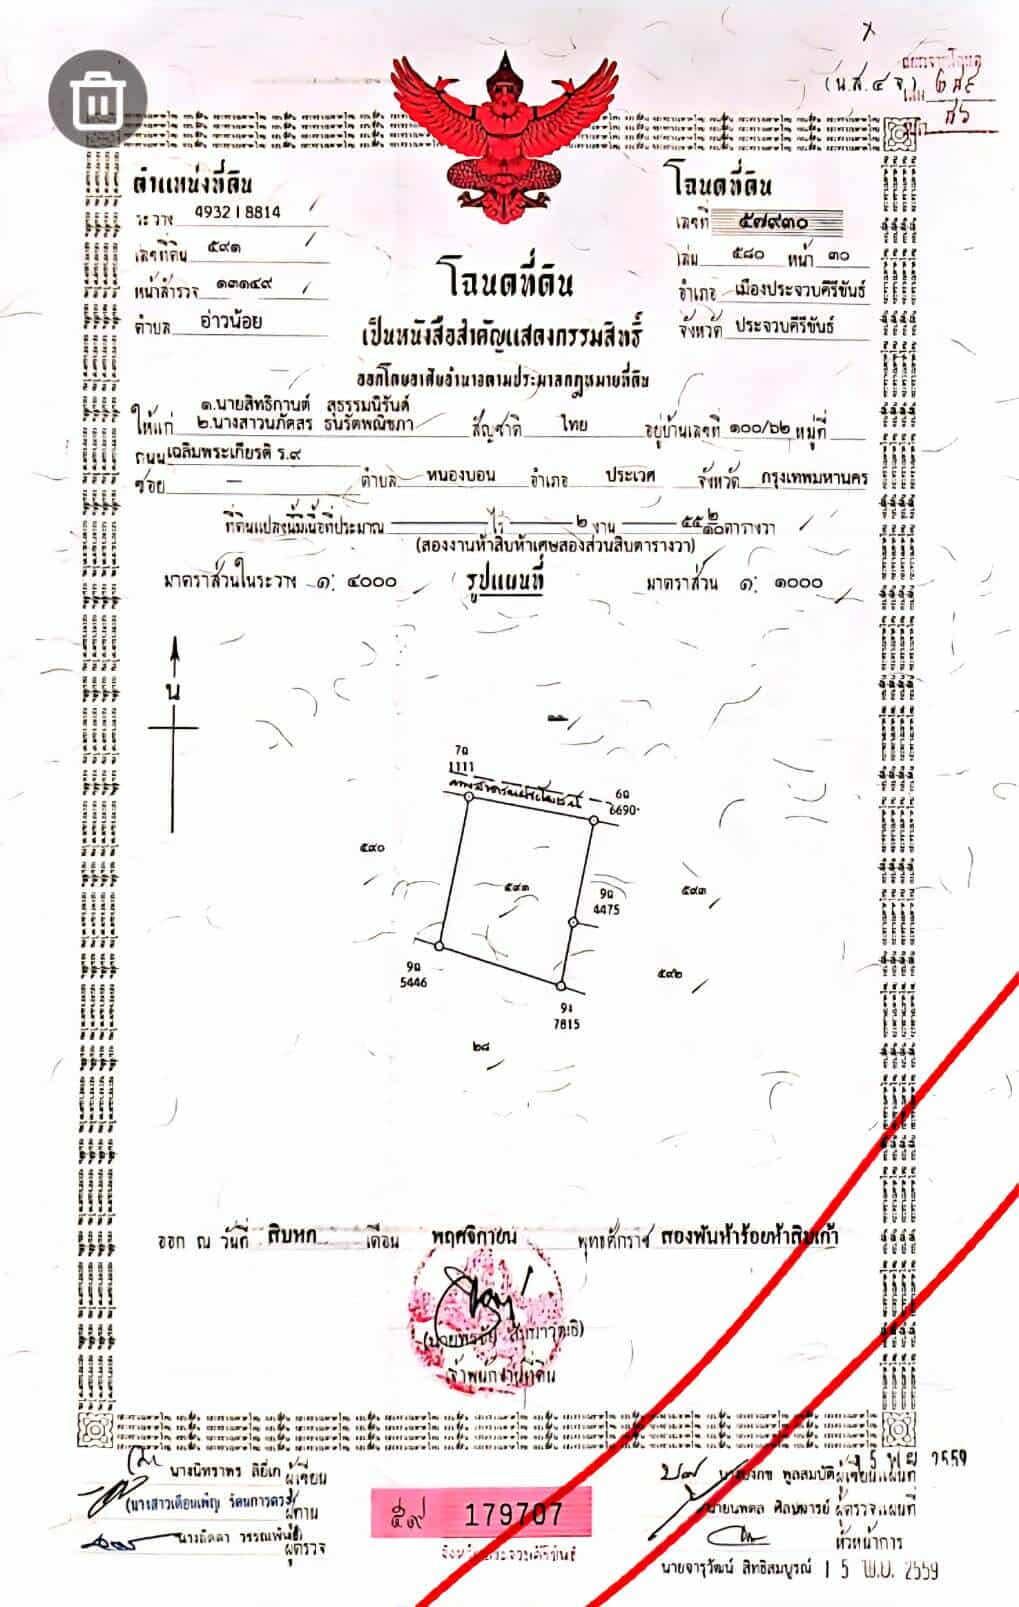 (น.ส.๔ จ)
ตำแหน่งที่ดิน
ระวาง 4932 I 8814
เลขที่ดิน ๕๙๑
หน้าสำรวจ ๑๓๑๔๙
ตำบล อ่าวน้อย
โฉนดที่ดิน
เลขที่ ๕๗๙๓๐
เล่ม ๕๘๐ หน้า ๓๐
อำเภอ เมืองประจวบคีรีขันธ์
จังหวัด ประจวบคีรีขันธ์
โฉนดที่ดิน
เป็นหนังสือสำคัญแสดงกรรมสิทธิ์
ออกโดยอาศัยอำนาจตามประมวลกฎหมายที่ดิน
๑.นายสิทธิกานต์ สุธรรมนิรันด์
ให้แก่ ๒.นางสาวนภัสสร ธนรัตพณิชภา สัญชาติ ไทย อยู่บ้านเลขที่ ๑๐๐/๖๒ หมู่ที่
ถนน เฉลิมพระเกียรติ ร.๙
ซอย — ตำบล หนองบอน อำเภอ ประเวศ จังหวัด กรุงเทพมหานคร
ที่ดินแปลงนี้มีเนื้อที่ประมาณ — ไร่ — ๒ งาน — ๕๕ ๒/๑๐ ตารางวา
(สองงานห้าสิบห้าเศษสองส่วนสิบตารางวา)
มาตราส่วนในระวาง ๑: ๔๐๐๐ รูปแผนที่ มาตราส่วน ๑: ๑๐๐๐
น
7ฉ
1111
ทางสาธารณประโยชน์
6ฉ
6690
๕๙๐
๕๙๑
9ฉ
4475
๕๙๓
๕๙๒
9ฉ
5446
9ง
7815
๒๘
ออก ณ วันที่ สิบหก เดือน พฤศจิกายน พุทธศักราช สองพันห้าร้อยห้าสิบเก้า
เจ้าพนักงานที่ดิน
นางนิทราพร ลิยี่เก ผู้เขียน
(นางสาวเดือนเพ็ญ รัตนกาวดวง) ผู้ทาน
ผู้ตรวจ
๕๙ 179707
จังหวัดประจวบคีรีขันธ์
15 พ.ย. 2559
นางบงกช พูลสมบัติ ผู้เขียนแผนที่
นายนพดล ศิลปจารย์ ผู้ตรวจแผนที่
หัวหน้าการ
นายจารุวัฒน์ สิทธิสมบูรณ์ 15 พ.ย. 2559